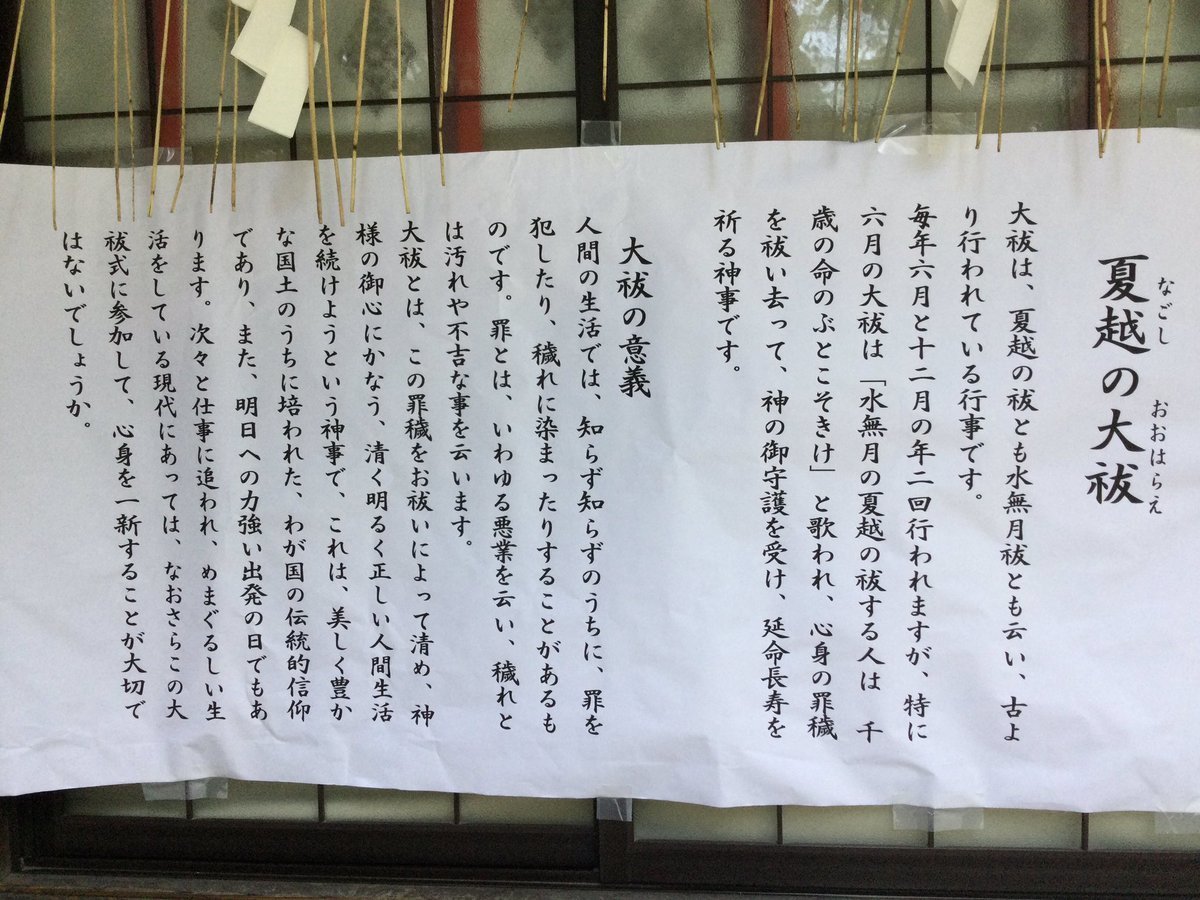 なごし おおはらえ
夏越の大祓
大祓は、夏越の祓とも水無月祓とも云い、古よ
り行われている行事です。
毎年六月と十二月の年二回行われますが、特に
六月の大祓は「水無月の夏越の祓する人は 千
歳の命のぶとこそきけ」と歌われ、心身の罪穢
を祓い去って、神の御守護を受け、延命長寿を
祈る神事です。
大祓の意義
人間の生活では、知らず知らずのうちに、罪を
犯したり、穢れに染まったりすることがあるも
のです。罪とは、いわゆる悪業を云い、穢れと
は汚れや不吉な事を云います。
大祓とは、この罪穢をお祓いによって清め、神
様の御心にかなう、清く明るく正しい人間生活
を続けようという神事で、これは、美しく豊か
な国土のうちに培われた、わが国の伝統的信仰
であり、また、明日への力強い出発の日でもあ
ります。次々と仕事に追われ、めまぐるしい生
活をしている現代にあっては、なおさらこの大
祓式に参加して、心身を一新することが大切で
はないでしょうか。